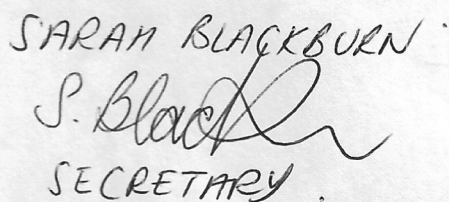 SARAH BLACKBURN.
S. Black
SECRETARY.